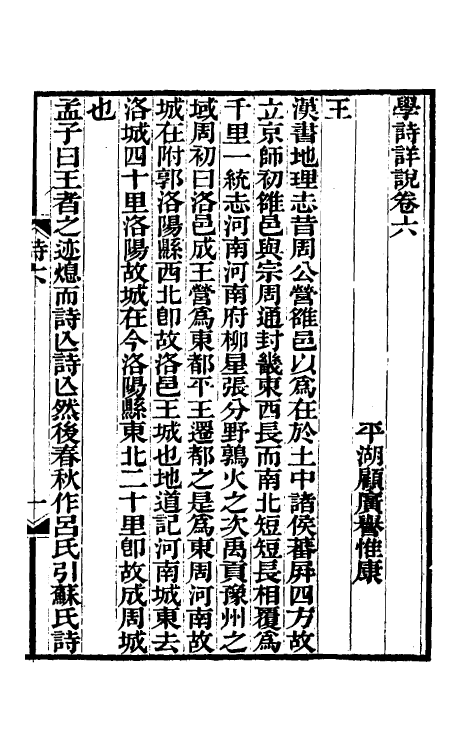 學詩詳說卷六
平湖顧廣譽惟康
王
漢書地理志昔周公營雒邑以爲在於土中諸侯蕃屏四方故
立京師初雒邑與宗周通封畿東西長而南北短短長相覆爲
千里一統志河南河南府柳星張分野鶉火之次禹貢豫州之
域周初曰洛邑成王營爲東都平王遷都之是爲東周河南故
城在附郭洛陽縣西北卽故洛邑王城也地道記河南城東去
洛城四十里洛陽故城在今洛陽縣東北二十里卽故成周城
也
孟子曰王者之迹熄而詩亾詩亾然後春秋作呂氏引蘇氏詩
詩六
一